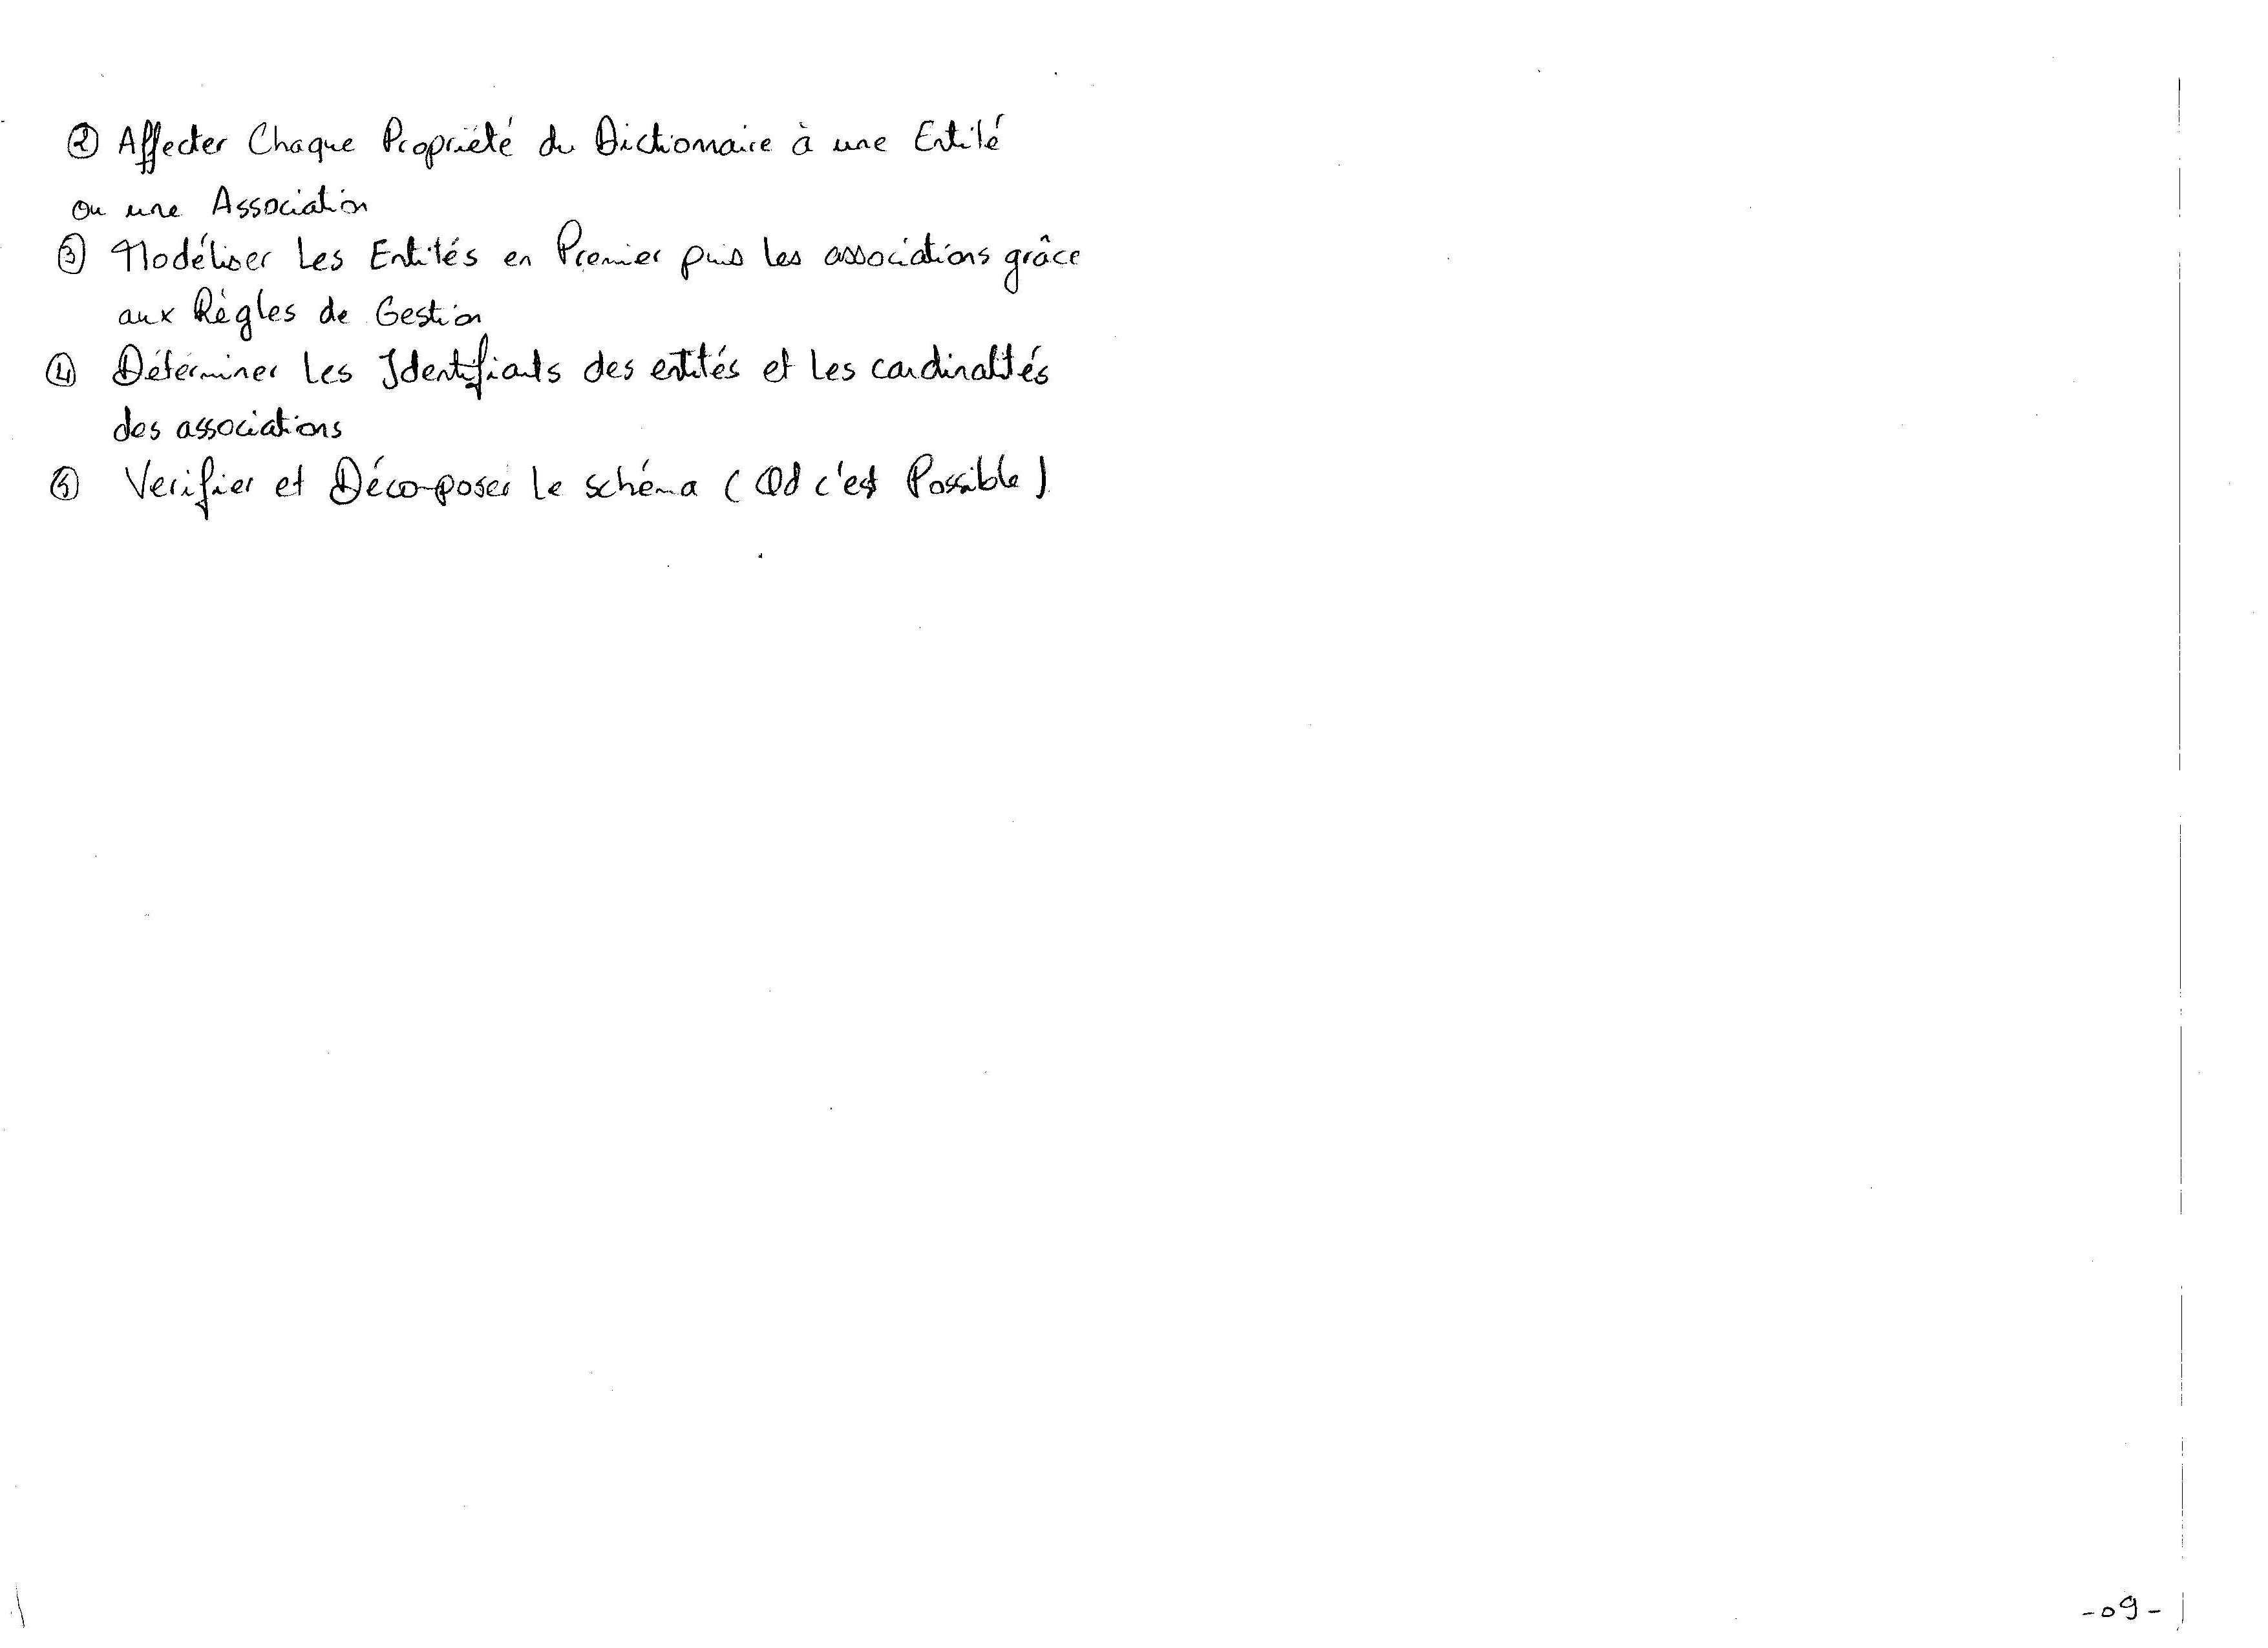 ② Affecter Chaque Propriété du Dictionnaire à une Entité
ou une Association
③ Modéliser Les Entités en Premier puis les associations grâce
aux Règles de Gestion
④ Déterminer Les Identifiants des entités et Les cardinalités
des associations
⑤ Verifier et Décomposer le schéma (Qd c'est Possible)
-09-